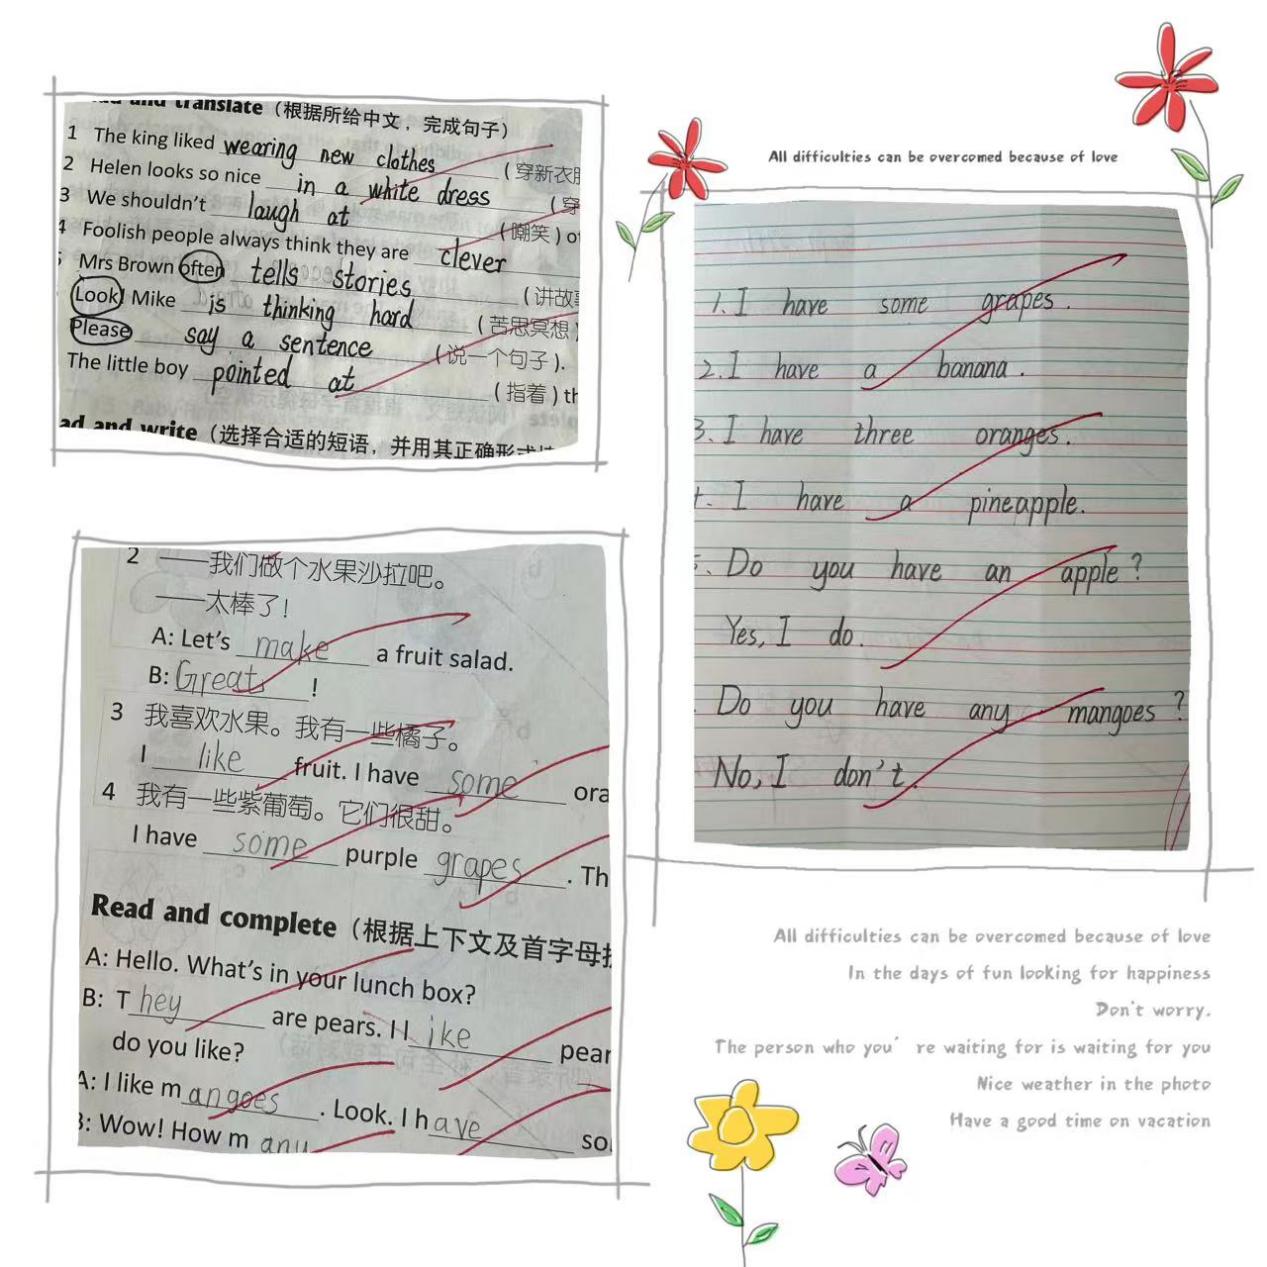 and translate (根据所给中文，完成句子)
1 The king liked wearing new clothes (穿新衣服
2 Helen looks so nice in a white dress (穿
3 We shouldn't laugh at (嘲笑) of
4 Foolish people always think they are clever
Mrs Brown often tells stories (讲故事
Look! Mike is thinking hard (苦思冥想)
Please say a sentence (说一个句子).
The little boy pointed at (指着) th
ad and write (选择合适的短语，并用其正确形式
All difficulties can be overcomed because of love
1. I have some grapes.
2. I have a banana.
3. I have three oranges.
I have a pineapple.
Do you have an apple?
Yes, I do.
Do you have any mangoes?
No, I don't.
2 ——我们做个水果沙拉吧。
——太棒了！
A: Let's make a fruit salad.
B: Great !
3 我喜欢水果。我有一些橘子。
I like fruit. I have some ora
4 我有一些紫葡萄。它们很甜。
I have some purple grapes. Th
Read and complete (根据上下文及首字母
A: Hello. What's in your lunch box?
B: They are pears. I like pear
do you like?
A: I like mangoes. Look. I have so
B: Wow! How many
All difficulties can be overcomed because of love
In the days of fun looking for happiness
Don't worry.
The person who you're waiting for is waiting for you
Nice weather in the photo
Have a good time on vacation